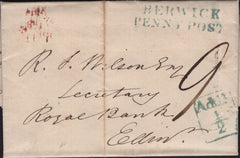 BERWICK
PENNY POST
R. S. Wilson Esq
9
Secretary
Royal Bank
Edinr
Add
1/2